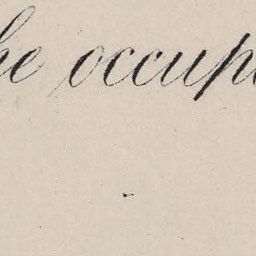 he occup